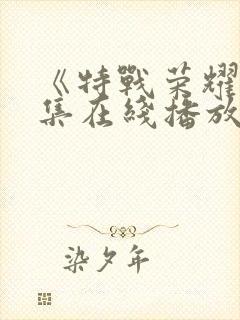 《特戰荣耀
集在綫播放
染夕年